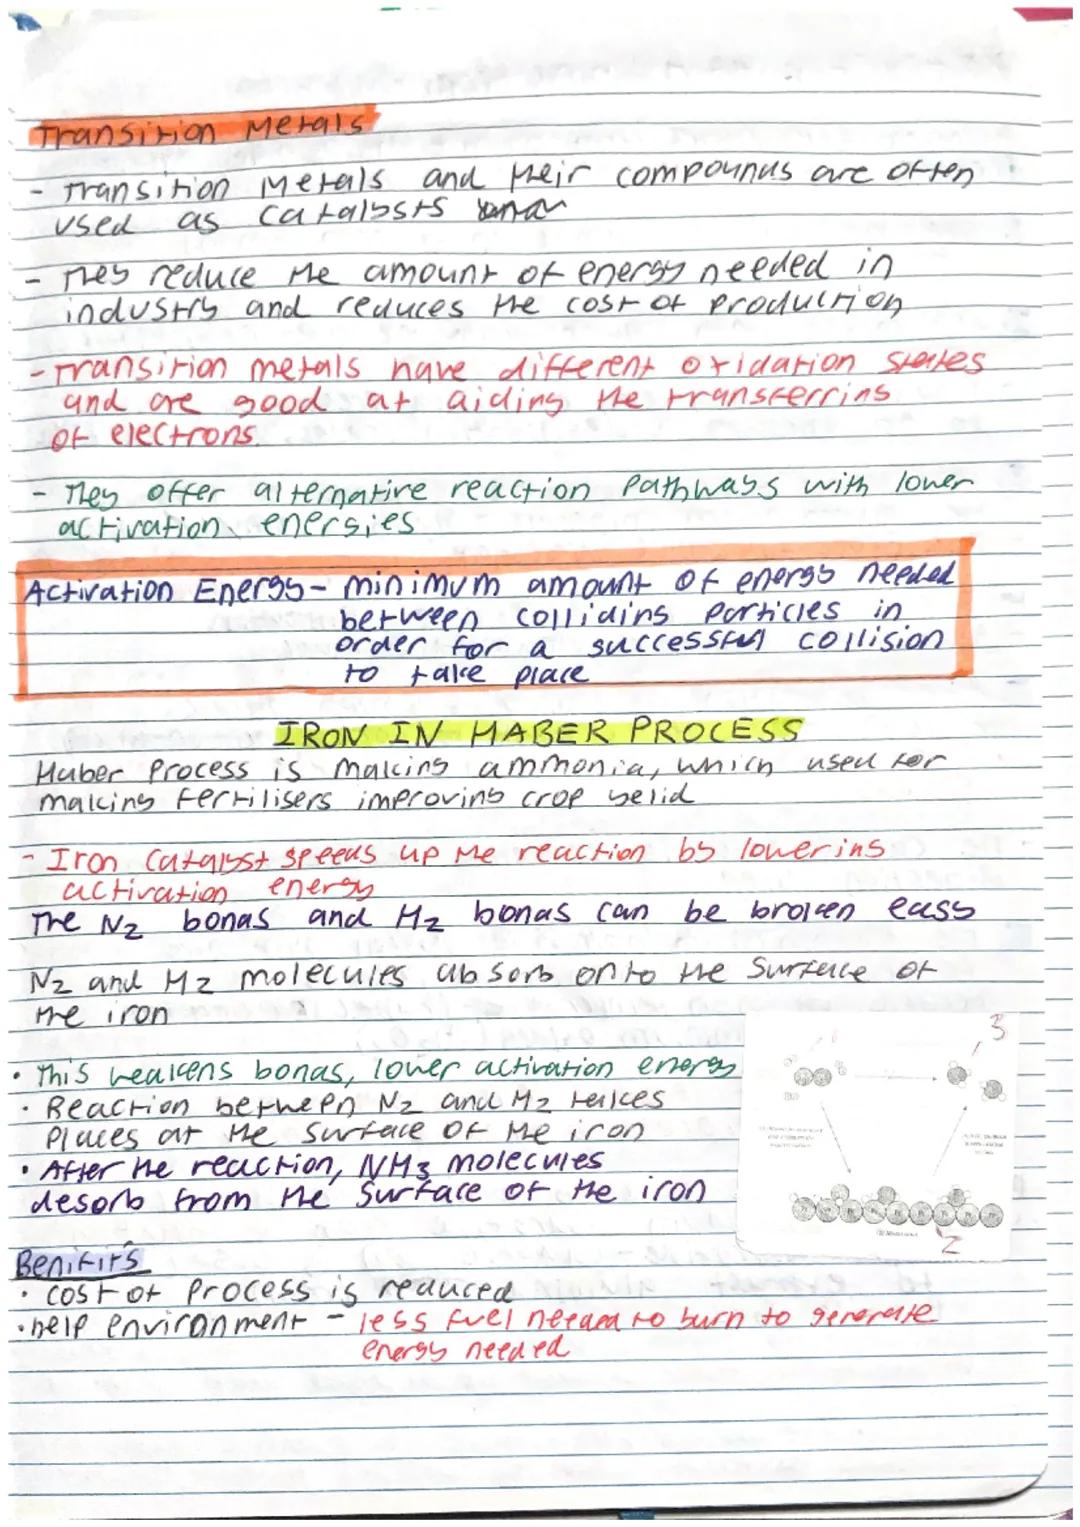 Transition Metals
- Transition Metals and their compounds are often
used as catalysts
- They reduce the amount of energy needed in
industry and reduces the cost of production
- Transition metals have different oxidation states
and are good at aiding the transferring
of electrons.
- They offer alternative reaction pathways with lower
activation energies
Activation Energy - minimum amount of energy needed
between colliding particles in
order for a successful collision
to take place
IRON IN HABER PROCESS
Haber Process is making ammonia, which used for
making fertilisers improving crop yelid
- Iron Catalyst speeds up the reaction by lowering
activation energy
The N2 bonds and H2 bonds can be broken easy
N2 and H2 molecules absorb onto the surface of
the iron
• This weakens bonds, lower activation energy
• Reaction between N2 and H2 takes
places at the surface of the iron
• After the reaction, NH3 molecules
desorb from the surface of the iron
1
3
2
Benifits
• cost of process is reduced
• help environment - less fuel needed to burn to generate
energy needed